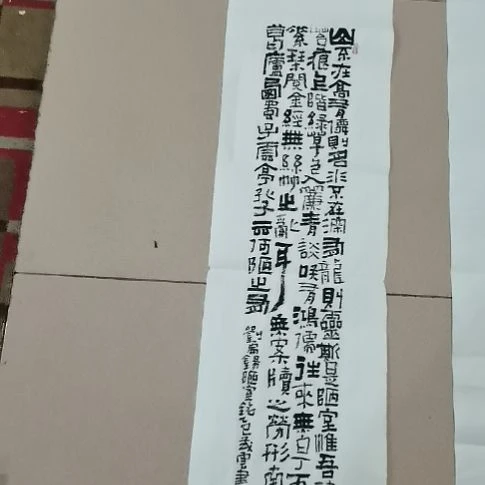 山不在高有僊則名水不在深有龍則靈斯是陋室惟吾
苔痕上階緑草色入簾青談笑有鴻儒往來無白丁可
素琴閱金經無絲竹之亂耳無案牘之勞形南
葛廬西蜀子雲亭孔子云何陋之有
劉禹錫陋室銘